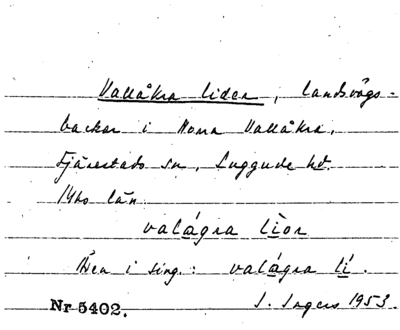 Vallåkra lider, landsvägs-
backar i Norra Vallåkra,
Fjärestads sn, Luggude hd.
M-hs län
valágra lìor
Även i sing.: valágra lí.
Nr 5402. I. Ingers 1953.